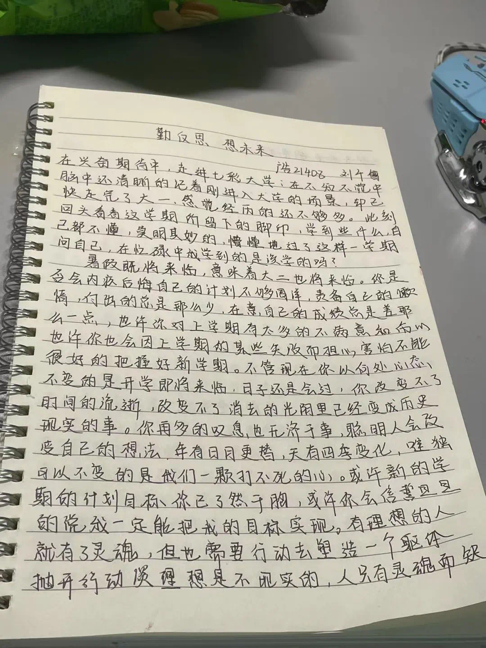 勤反思 想未来
治21408 刘千
在兴奋期待中，走进七彩大学；在不知不觉中
快走完了大一，感觉经历的还不够多。此刻
脑中还清晰的记着刚进入大学的场景，却已
回头看看这学期所留下的脚印，学到些什么，自
己都不懂，莫明其妙的，懵懂地过了这样一学期
问自己，在忙碌中我学到的是该学的吗？
暑假既将来临，意味着大二也将来临。你是
否会内疚后悔自己的计划不够周详，责备自己的懒
惰，付出的总是那么少，在意自己的成绩总是差那
么一点，也许你对上学期有太多的不满意和
也许你也会因上学期的某些失败而担心，害怕不能
很好的把握好新学期。不管现在你以何处心态，
不变的是开学即将来临，日子还是会过，你改变不了
时间的流逝，改变不了消去的光阴里已经变成历史
现实的事。你再多的叹息也无济于事，聪明人会改
变自己的想法，年有日月更替，天有四季变化，唯独
可以不变的是他们一颗打不死的心。或许新的学
期的计划目标你已了然于胸，或许你会信誓旦旦
的说我一定能把我的目标实现。有理想的人
就有了灵魂，但也需要行动去塑造一个躯体
抛开行动谈理想是不现实的，人只有灵魂而缺